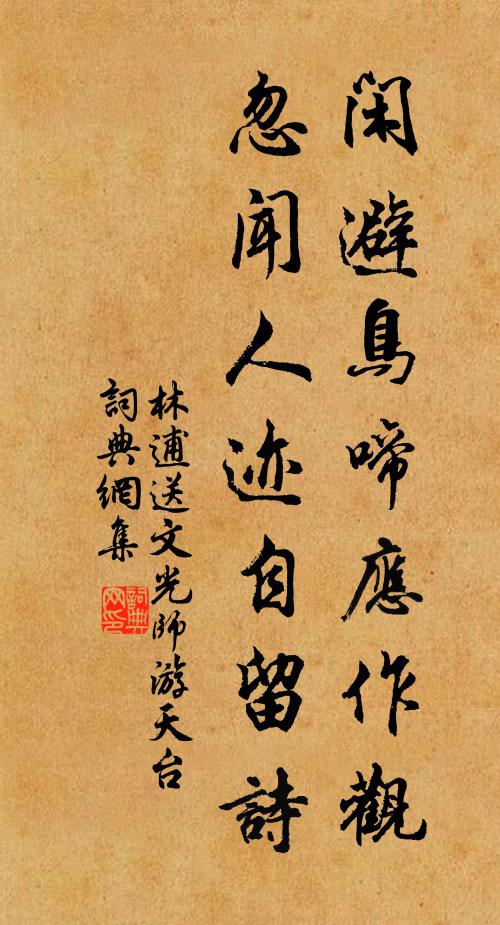 閑避鳥啼應作觀
忽聞人迹自留詩
林逋送文光師游天台
詞典網集
詞典网印